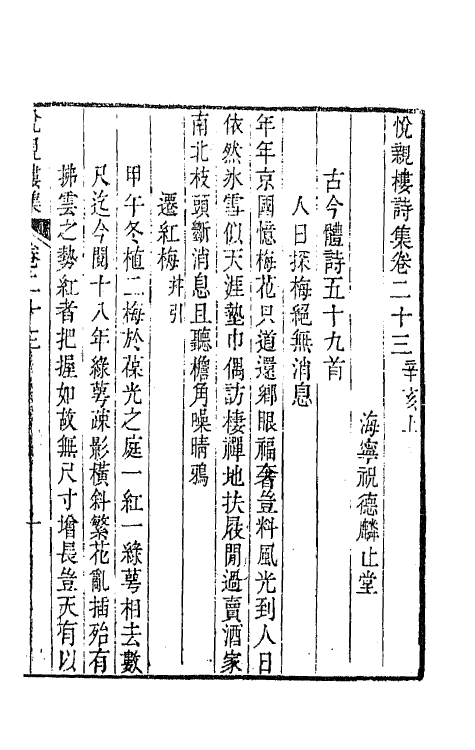 悅親樓詩集卷二十三 辛亥上
海寧祝德麟止堂
古今體詩五十九首
人日探梅絕無消息
年年京國憶梅花只道還鄉眼福奢豈料風光到人日
依然氷雪似天涯墊巾偶訪棲禪地扶屐閒過賣酒家
南北枝頭斷消息且聽檐角噪晴鴉
遷紅梅 并引
甲午冬植二梅於葆光之庭一紅一綠萼相去數
尺迄今閱十八年綠萼疎影橫斜繁花亂插殆有
拂雲之勢紅者把握如故無尺寸增長豈天有以
悅親樓集 卷二十三 一